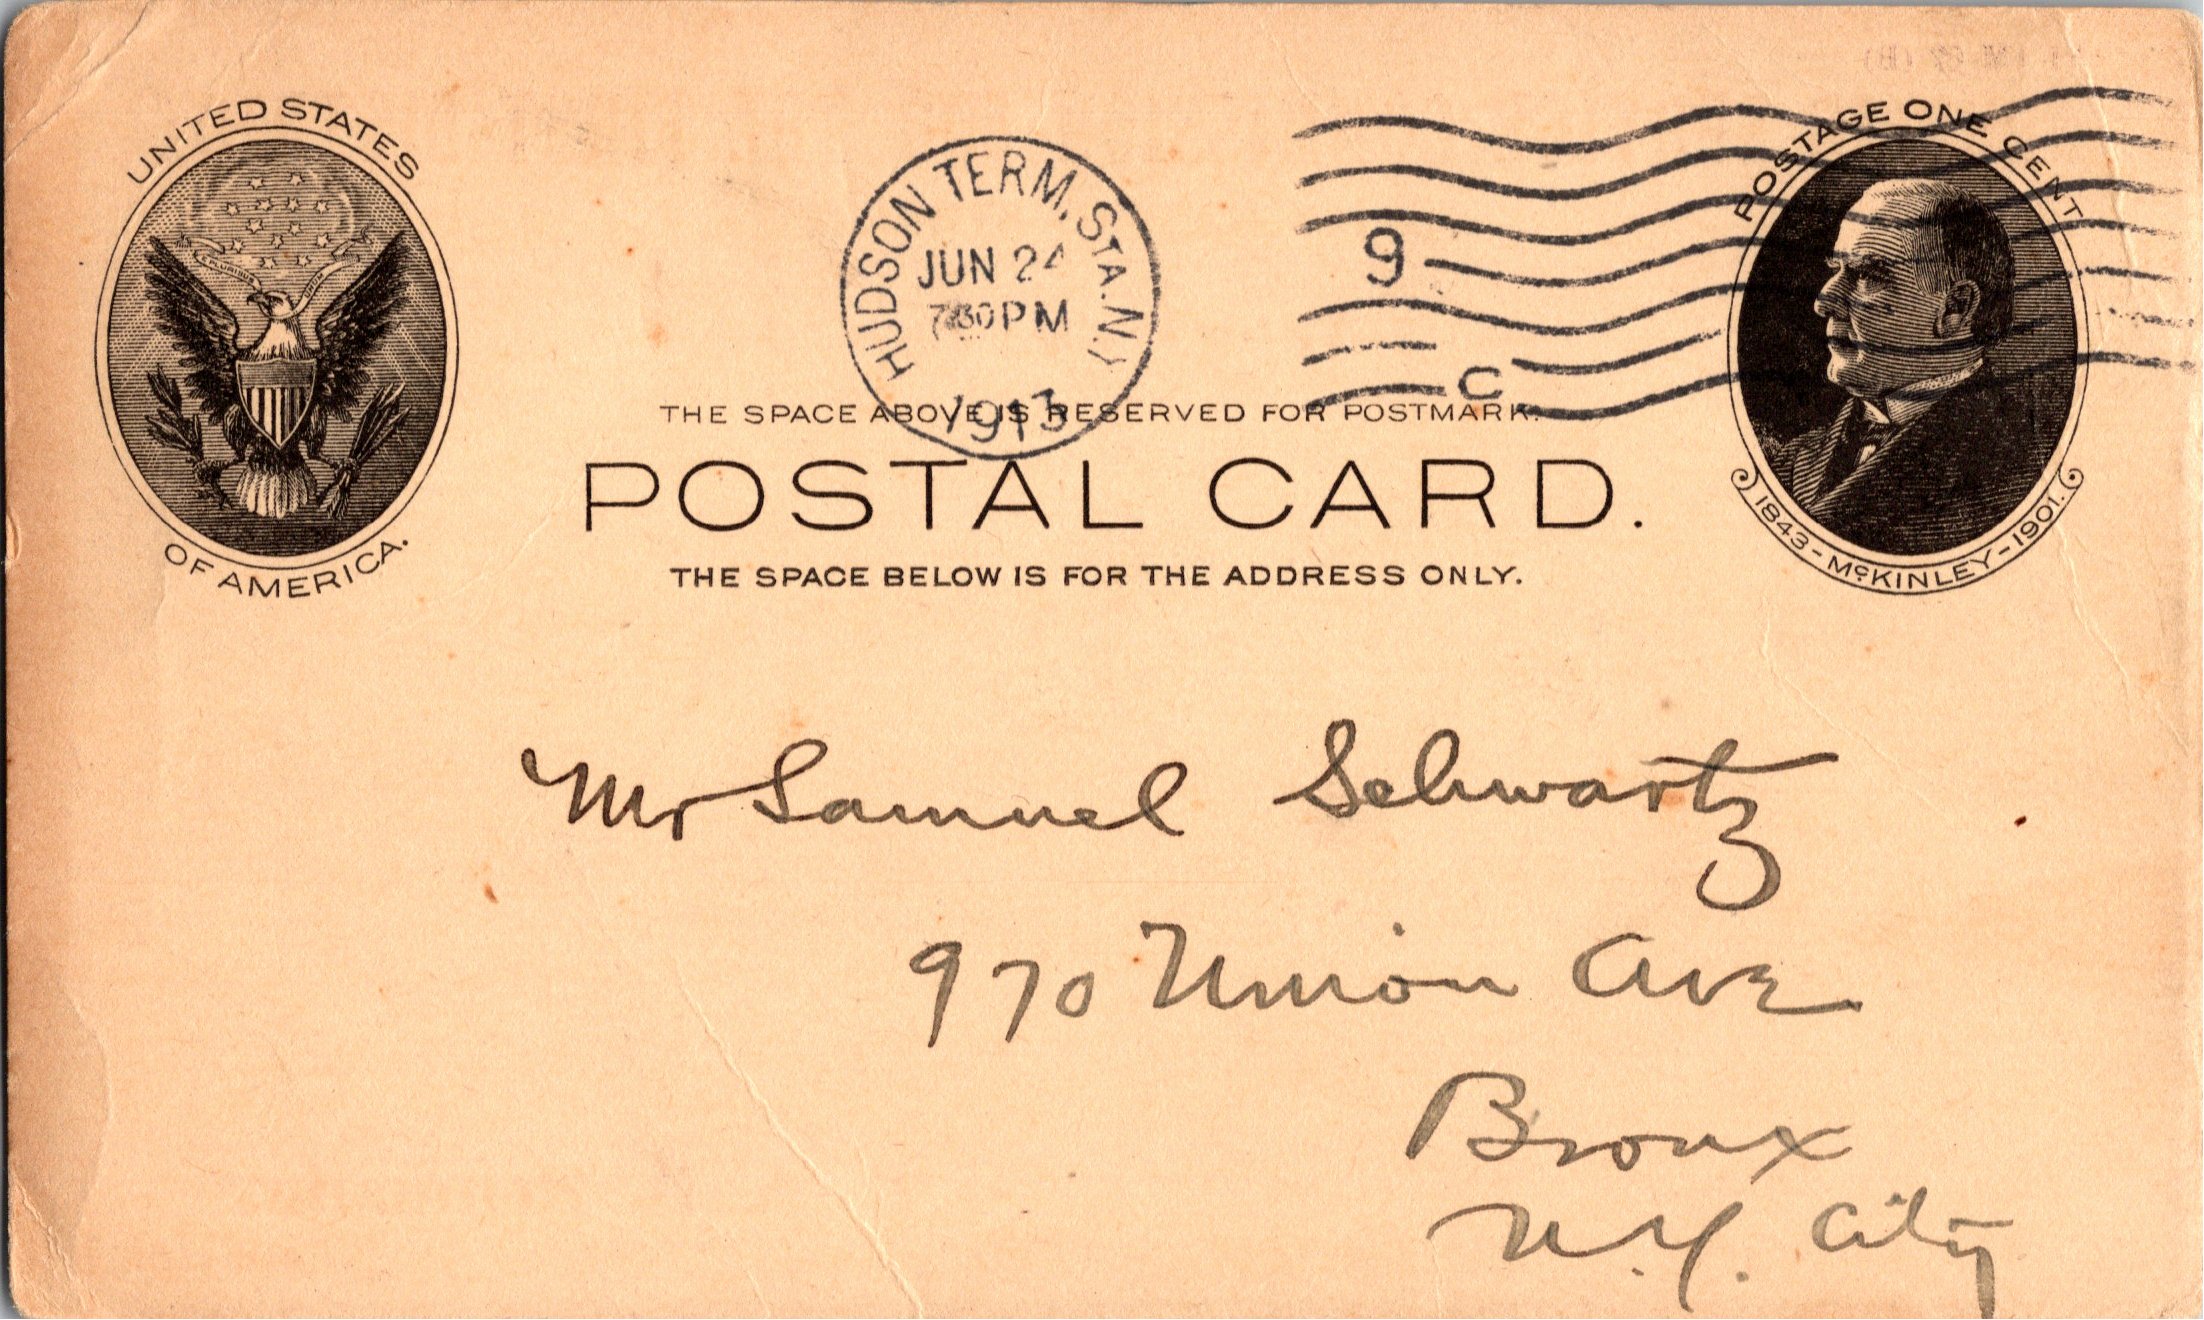 UNITED STATES
OF AMERICA.
HUDSON TERM. STA. N.Y.
JUN 24
7 30 PM
1913
9
C
POSTAGE ONE CENT
1843 - McKINLEY - 1901.
THE SPACE ABOVE IS RESERVED FOR POSTMARK.
POSTAL CARD.
THE SPACE BELOW IS FOR THE ADDRESS ONLY.
Mr Samuel Schwartz
970 Union Ave
Bronx
N.Y. City